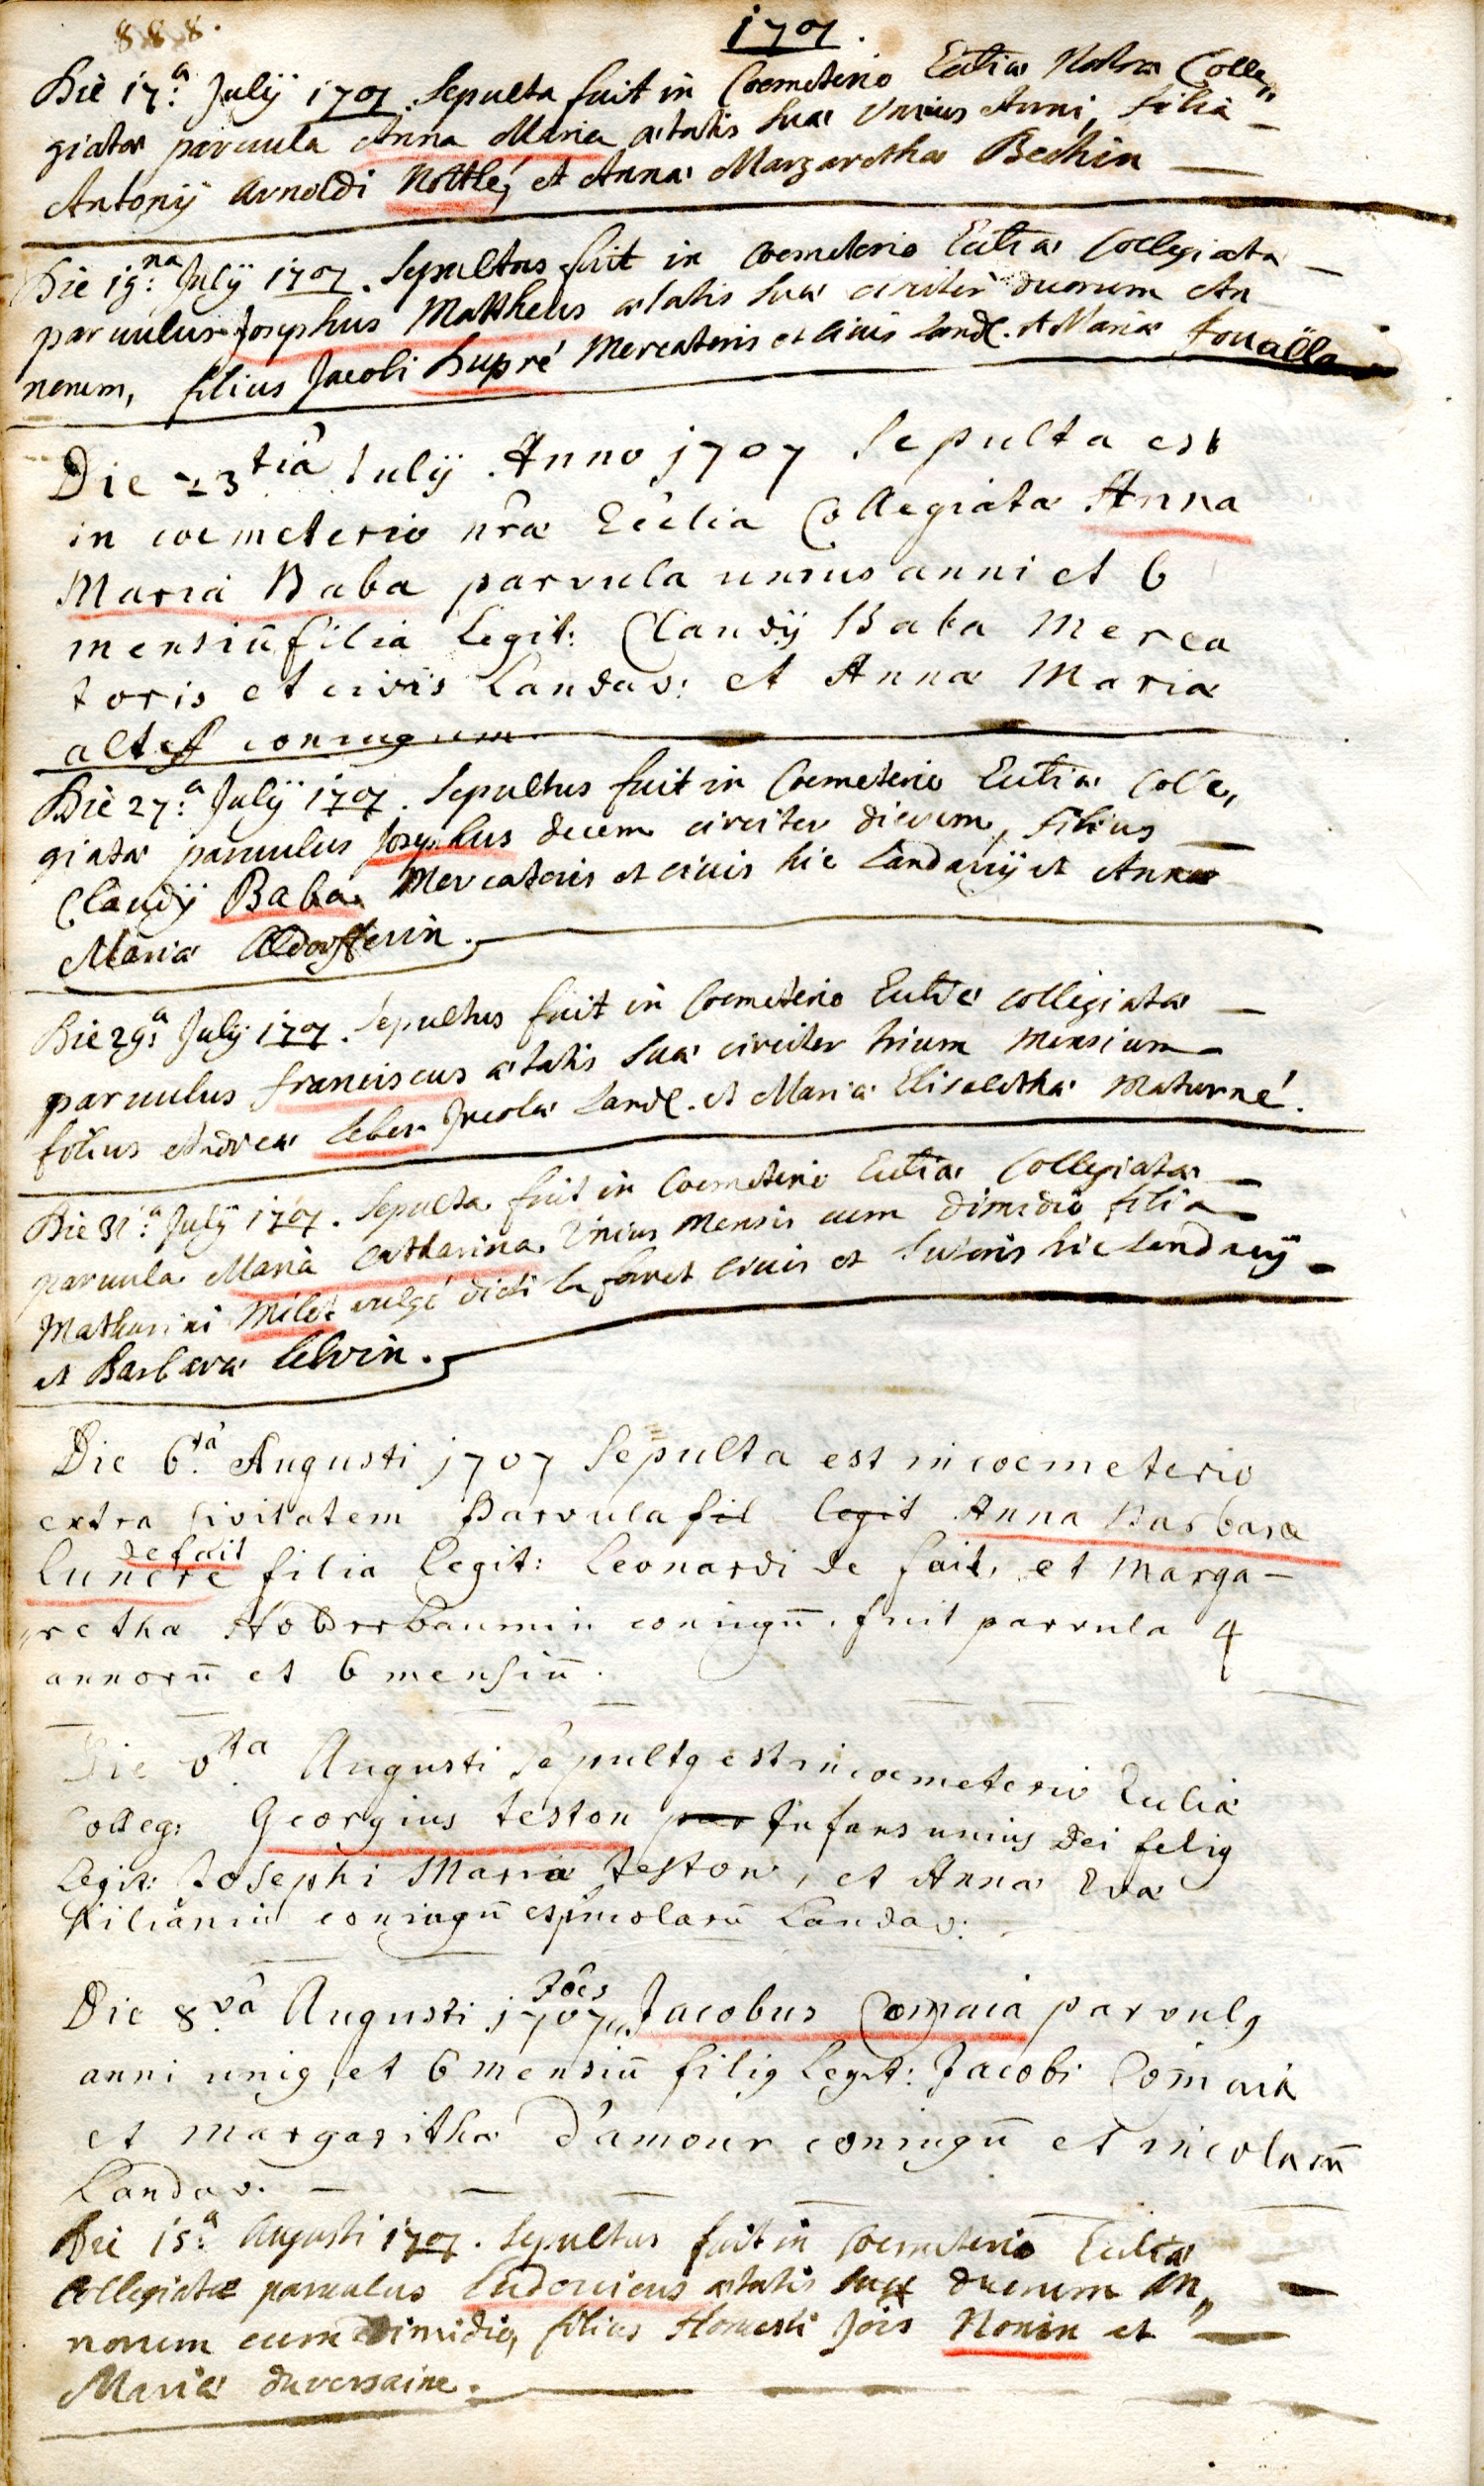 888.
1707.
Die 17.a Julÿ 1707. Sepulta fuit in Coemeterio Eccliæ Nostræ Colle„
giatæ paruula Anna Maria ætatis suæ Unius Anni, filia
Antonÿ Arnoldi Nottlé, et Annæ Margarethæ Bechin
Die 19.na Julÿ 1707. Sepultus fuit in Coemeterio Eccliæ Collegiatæ
paruulus Josephus Mattheus ætatis suæ circiter duorum An
norum, filius Jacobi Dupré Mercatoris et ciuis Land. et Mariæ
Die 23tiâ Iulÿ Anno 1707 Sepulta est
in coemeterio nr̃æ Ecclia Collegiatæ Anna
Maria Baba parvula unius anni et 6
mensiũ filia Legit: Claudÿ Baba Merca
toris et civis Landav: et Annæ Mariæ
coniugum
Die 27.a Julÿ 1707. Sepultus fuit in Coemeterio Eccliæ Colle,
giatæ paruulus Josephus decem circiter dierum, filius
Claudÿ Baba. Mercatoris et ciuis hic Landauÿ et Annæ
Mariæ Aldorfferin.
Die 29.a Julÿ 1707. Sepultus fuit in Coemeterio Eccliæ Collegiatæ
paruulus franciscus ætatis suæ circiter trium Mensium
filius Andreæ Leber Incolæ Land. et Mariæ Elisabethæ Maturné.
Die 31.a Julÿ 1707. Sepulta fuit in Coemeterio Eccliæ Collegiatæ
paruula Maria Catharina Unius Mensis cum dimidio filia
Mathurini Milet vulgó dicti la foret ciuis et Sutoris hic Landauÿ
et Barbaræ Lelvin.
Die 6.tâ Augusti 1707 Sepulta est in coemeterio
extra civitatem Parvula fil legit Anna Barbara
de fait
Lunere filia Legit: Leonardi de fait, et Marga-
rethæ Hoderbaumin coniugũ. fuit parvula 4
annorũ et 6 mensiũ.
Die 6.ta Augusti Sepultq est in coemeterio Eccliæ
Colleg: Georgius teston par Infans unius Dei filiq
Legit: Josephi Mariæ teston, et Annæ Evæ
Kilianin coniugũ et incolarũ Landav:
Joẽs
Die 8.vâ Augusti 1707 Jacobus Comaia parvulq
anni uniq, et 6 mensiũ filiq Legit: Jacobi Com̃aia
et Margarithæ D'amour coniugũ et incolarũ
Landav.
Die 15.a Augusti 1707. Sepultus fuit in Coemeterio Eccliæ
Collegiatæ paruulus Ludouicus ætatis suæ duorum An„
norum cum dimidio, filius Honesti Jois Nonin et
Mariæ duversaine.